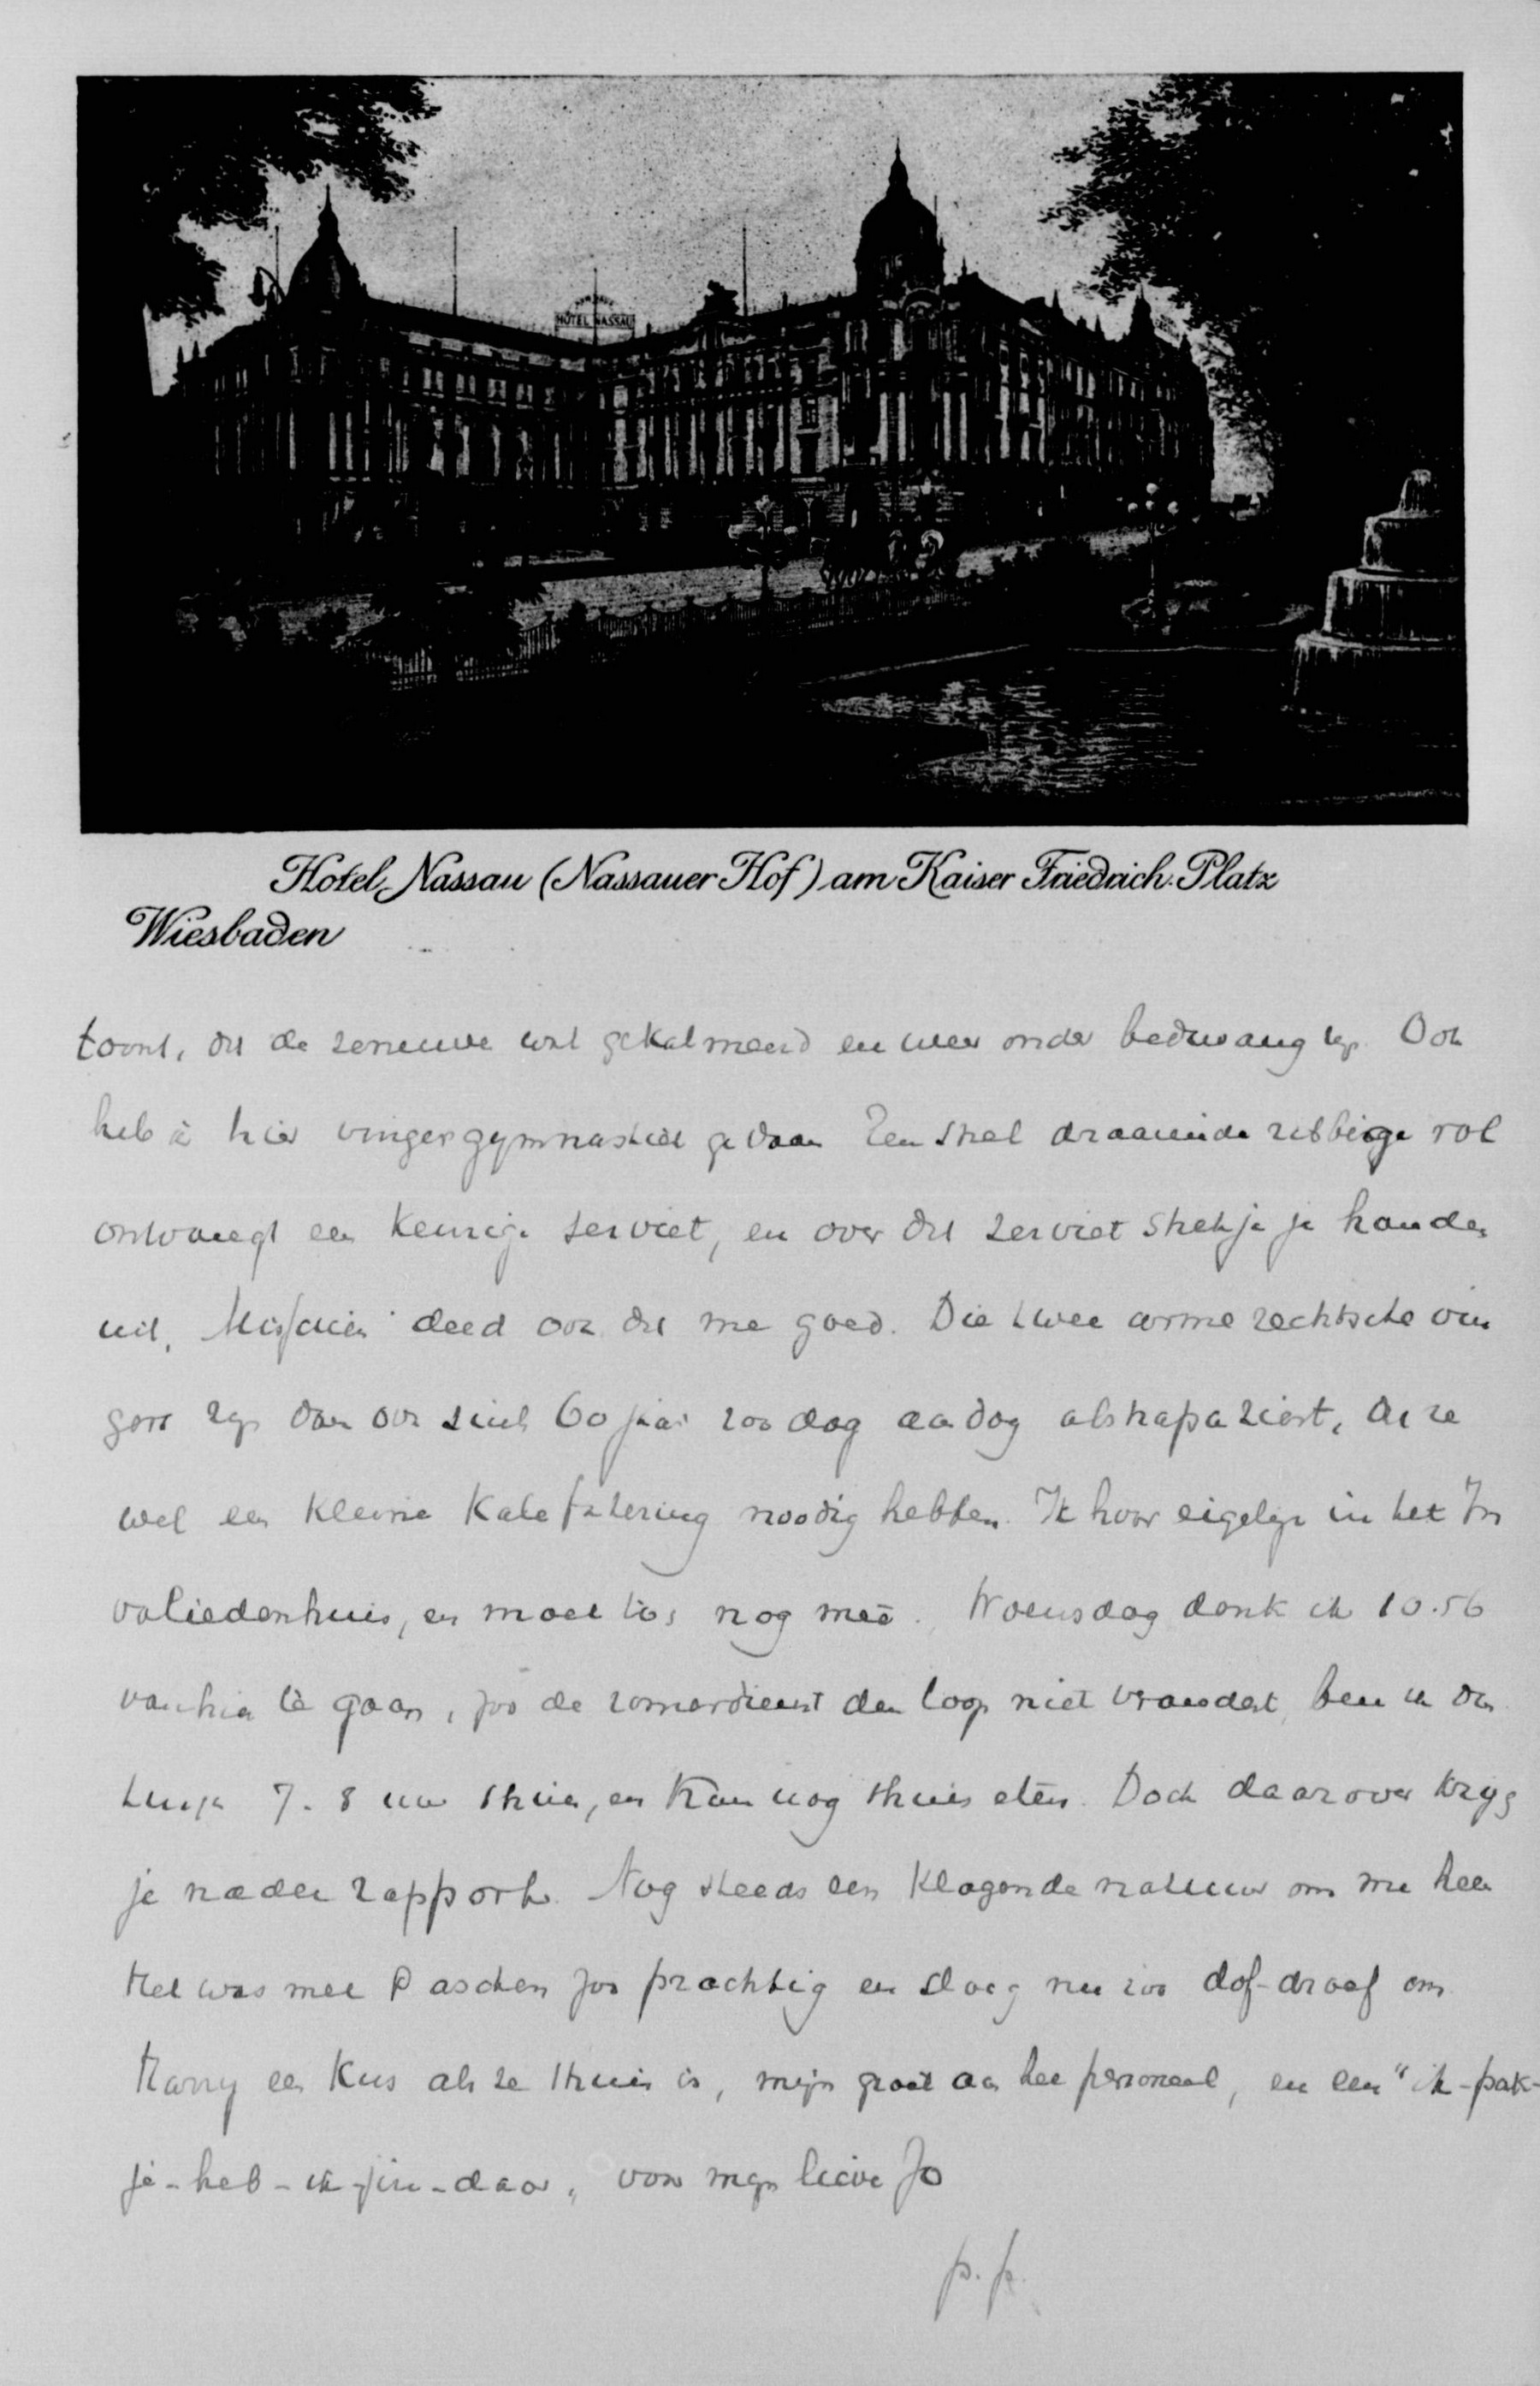 HOTEL NASSAU
Hotel Nassau (Nassauer Hof) am Kaiser Friedrich-Platz
Wiesbaden
toont, dat de zenuwe wat gekalmeerd en weer onder bedwang zijn Ook
heb ik hier vingergymnastiek gedaan Een snel draaiende ribbige rol
ontvangt een keurige serviet, en over dat serviet strek je je handen
uit. Misschien deed ook dat me goed. Die twee arme rechtsche vin
gers zijn dan ook sinds 60 jaar zoo dag aan dag afstrapaziert, dat ze
wel een kleine kalefatering noodig hebben. Ik hoor eigelijk in het In
valiedenhuis, en moet toch nog meê. Woensdag denk ik 10.56
van hier te gaan, zoo de zomerdienst den loop niet verandert, ben ik dan
7-8 uur thuis, en kan nog thuis eten. Doch daarover krijg
je nader rapport. Nog steeds een klagende natuur om me heen
Het was met Paschen zoo prachtig en sloeg nu zoo dof-droef om
Harry een kus als ze thuis is, mijn groet aan het personeel, en een "ik-pak-
je-heb-ik-jou-daar„ voor mijn lieve Jo
p.p.